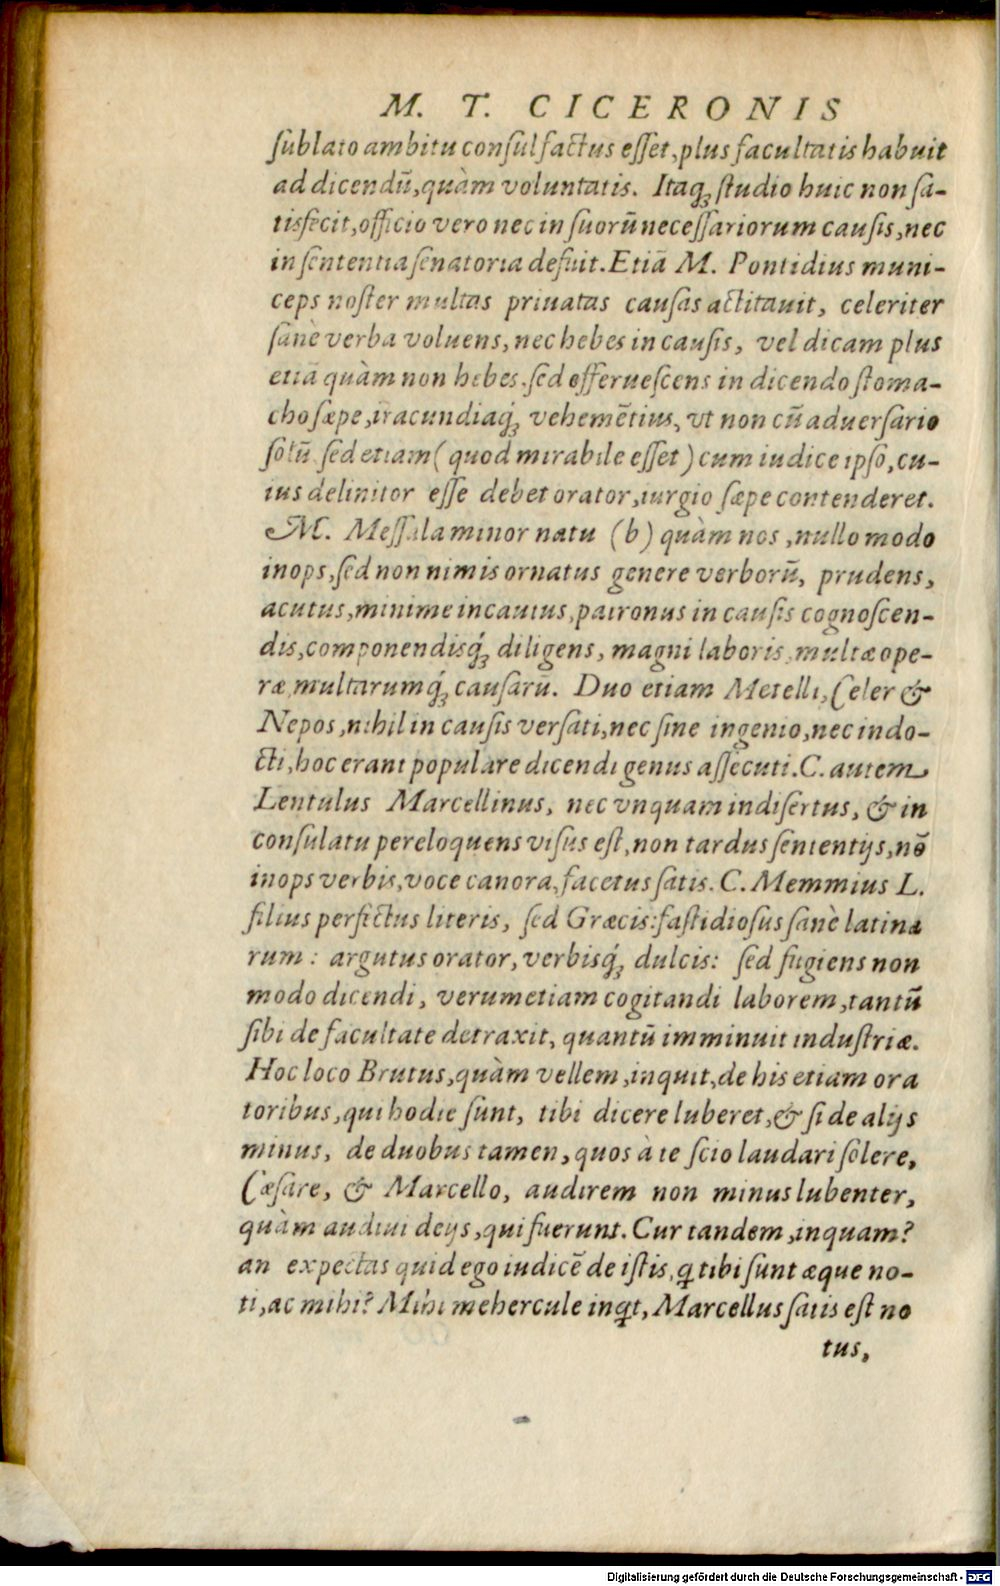 M. T. CICERONIS
ſublato ambitu conſul factus eſſet, plus facultatis habuit
ad dicendū, quàm voluntatis. Itaq; ſtudio huic non ſa-
tisfecit, officio vero nec in ſuorū neceſſariorum cauſis, nec
in ſententia ſenatoria defuit. Etiā M. Pontidius muni-
ceps noſter multas priuatas cauſas actitauit, celeriter
ſanè verba voluens, nec hebes in cauſis, vel dicam plus
etiā quàm non hebes, ſed efferueſcens in dicendo ſtoma-
cho ſæpe, iracundiaq́; vehemētius, vt non cū aduerſario
ſolū ſed etiam (quod mirabile eſſet) cum iudice ipſo, cu-
ius delinitor eſſe debet orator, iurgio ſæpe contenderet.
M. Meſſala minor natu (b) quàm nos, nullo modo
inops, ſed non nimis ornatus genere verborū, prudens,
acutus, minime incautus, patronus in cauſis cognoſcen-
dis, componendisq́; diligens, magni laboris, multæ ope-
ræ, multarumq́; cauſarū. Duo etiam Metelli, Celer &
Nepos, nihil in cauſis verſati, nec ſine ingenio, nec indo-
cti, hoc erant populare dicendi genus aſſecuti. C. autem
Lentulus Marcellinus, nec vnquam indiſertus, & in
conſulatu pereloquens viſus eſt, non tardus ſententijs, nō
inops verbis, voce canora, facetus ſatis. C. Memmius L.
filius perfectus literis, ſed Græcis: faſtidioſus ſanè latina
rum: argutus orator, verbisq́; dulcis: ſed fugiens non
modo dicendi, verumetiam cogitandi laborem, tantū
ſibi de facultate detraxit, quantū imminuit induſtriæ.
Hoc loco Brutus, quàm vellem, inquit, de his etiam ora
toribus, qui hodie ſunt, tibi dicere luberet, & ſi de alijs
minus, de duobus tamen, quos à te ſcio laudari ſolere,
Cæſare, & Marcello, audirem non minus lubenter,
quàm audiui de ijs, qui fuerunt. Cur tandem, inquam?
an expectas quid ego iudicē de iſtis, ꝗ tibi ſunt æque no-
ti, ac mihi? Mihi mehercule inꝗt, Marcellus ſatis eſt no
tus,
Digitalisierung gefördert durch die Deutsche Forschungsgemeinschaft - DFG